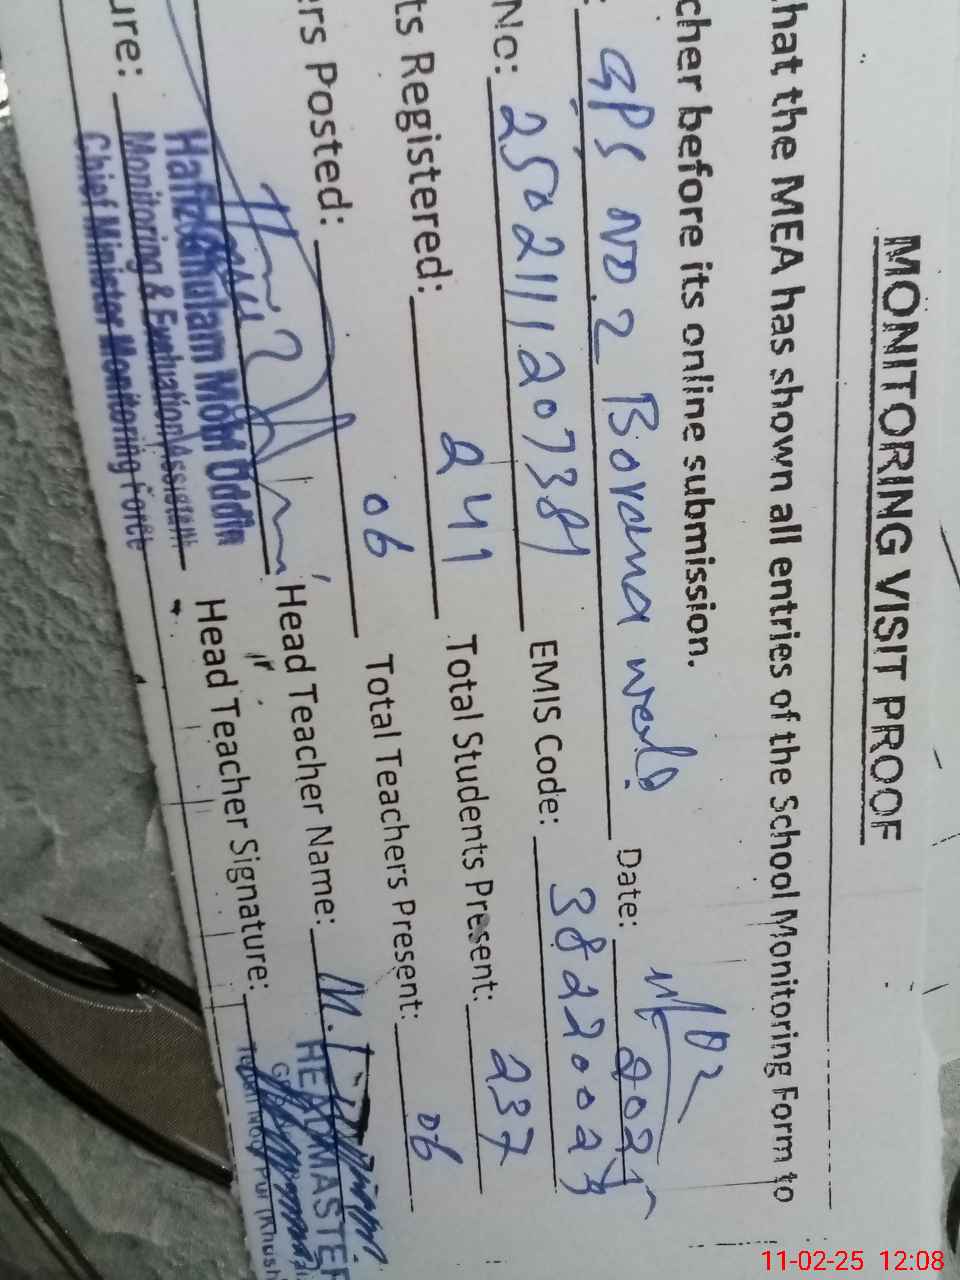 MONITORING VISIT PROOF
hat the MEA has shown all entries of the School Monitoring Form to
cher before its online submission.
: GPS NO. 2 Borana wala Date: 11/02 2025
No: 250211120738 EMIS Code: 38220023
ts Registered: 241 Total Students Present: 237
ers Posted: 06 Total Teachers Present: 06
Head Teacher Name: M.
ure: Head Teacher Signature:
Hafiz Ghulam Moin Uddin
Monitoring & Evaluation Assistant
Chief Minister Monitoring Force
HEADMASTER
11-02-25 12:08